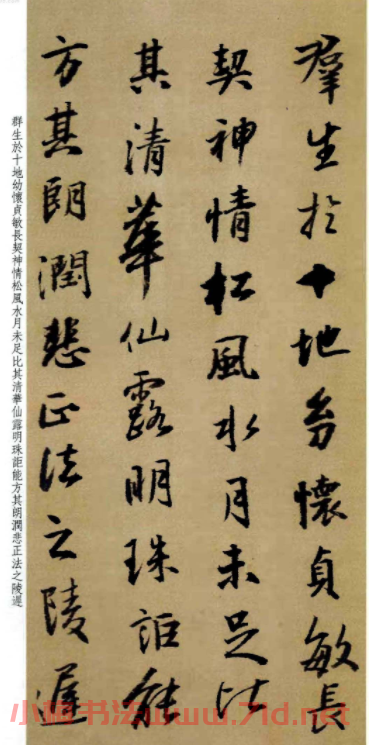 群生於十地幼懷貞敏長
契神情松風水月未足比
其清華仙露明珠詎能
方其朗潤悲正法之陵遲
群生於十地幼懷貞敏長契神情松風水月未足比其清華仙露明珠詎能方其朗潤悲正法之陵遲
书法www.71d.net